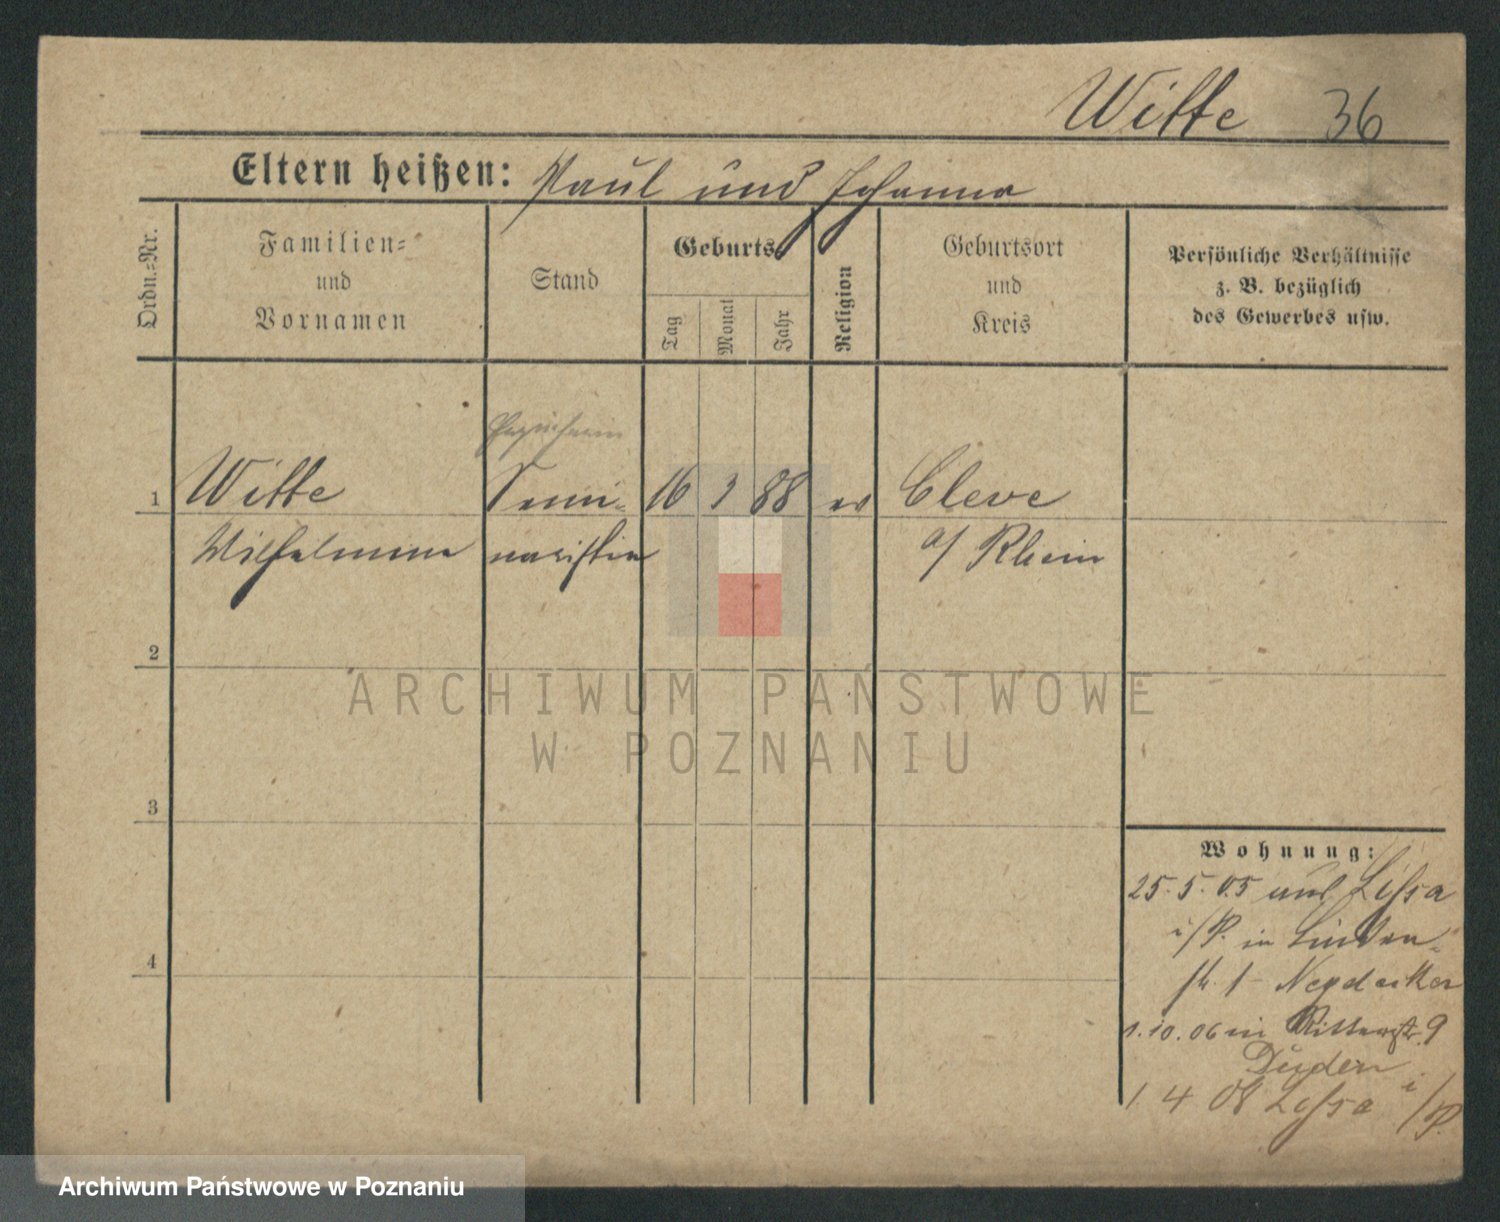 Witte 36
Eltern heißen: Paul und Johanna
Ordn.-Nr.
Familien-
und
Vornamen
Stand
Geburts
Tag
Monat
Jahr
Religion
Geburtsort
und
Kreis
Persönliche Verhältnisse
z. B. bezüglich
des Gewerbes usw.
1 Witte Semi- 16 3 88 ev Cleve
Wilhelmine naristin a/ Rhein
2
3
4
Wohnung:
25. 5. 05 aus Lissa
i/P. in Linden-
str. 1 Negdanker
1. 10. 06 in Ritterstr. 9
Duden
1 4 08 Lissa i/P.
ARCHIWUM PAŃSTWOWE
W POZNANIU
Archiwum Państwowe w Poznaniu